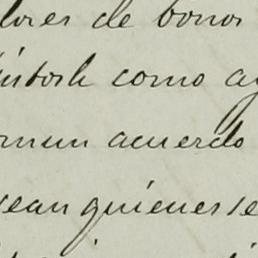 dores de bonos
intosh como a
omun acuerdo
sean quienes se